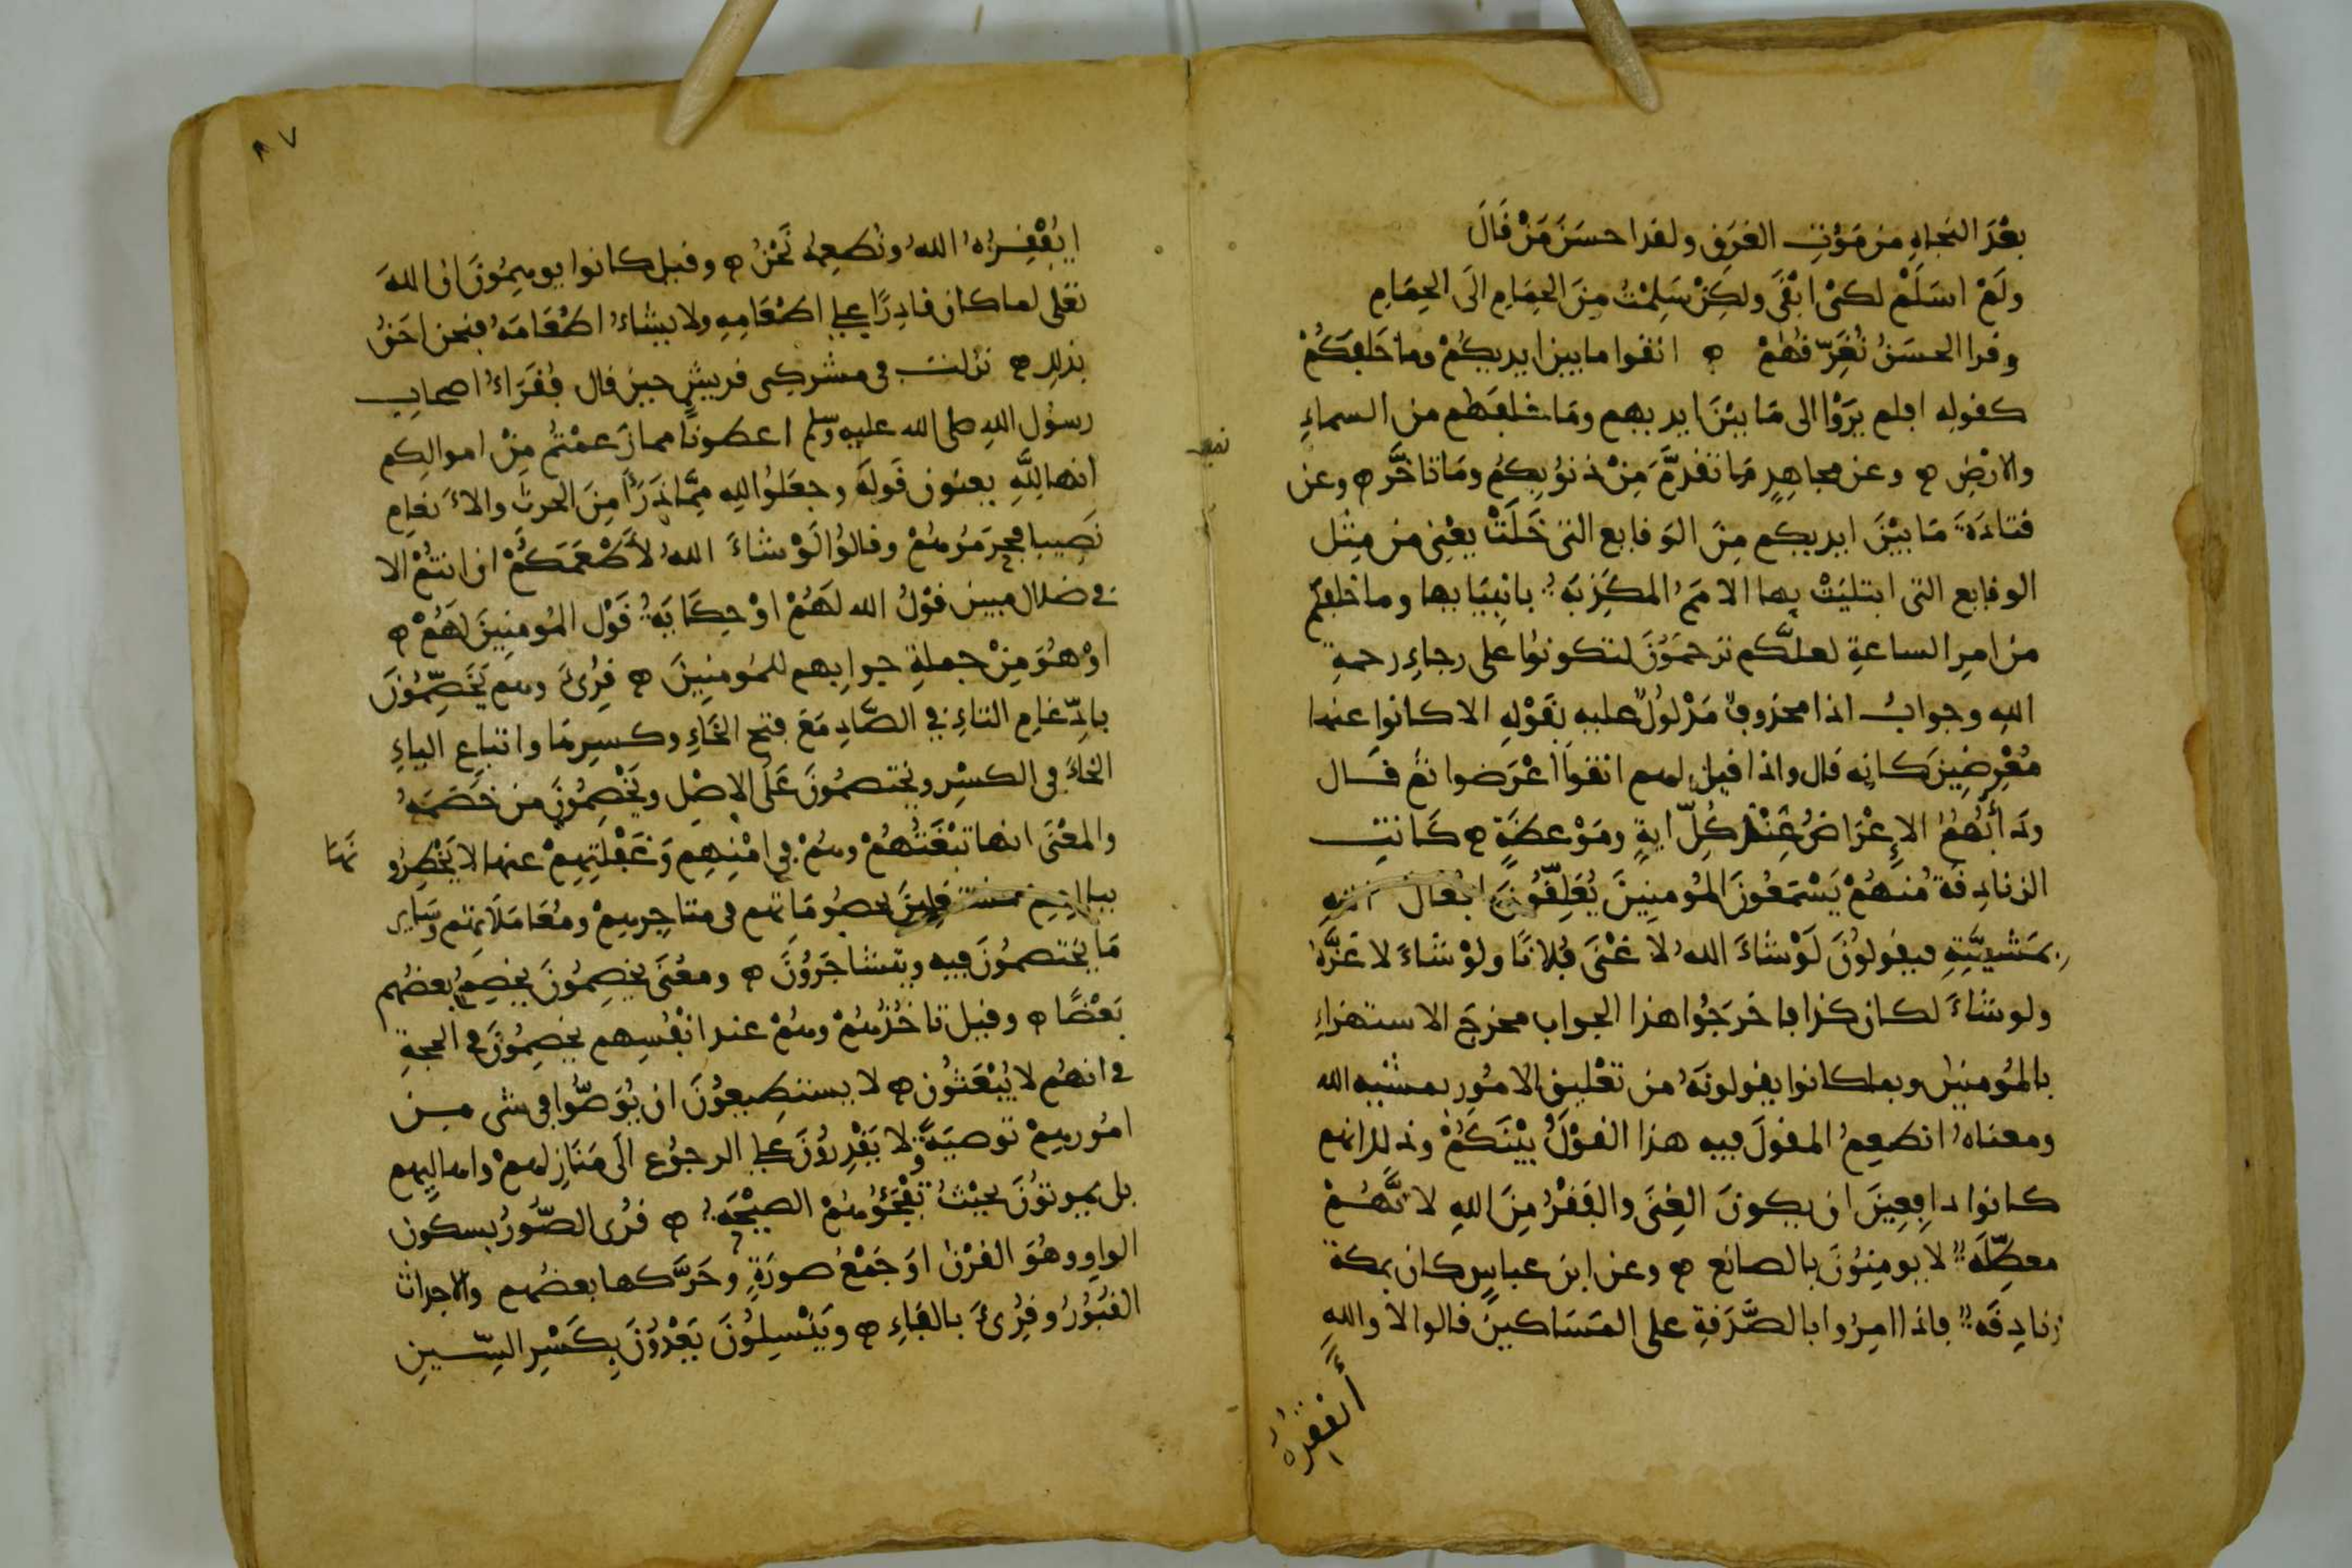 بعْدَ النجاةِ من مَوْتِ الغرَقِ ولقد احسَنَ مَنْ قَالَ
ولَمْ اسَلَمْ لكىْ ابْقَى ولكِنْ سَلِمْتُ مِنَ الحِمَامِ الَى الحِمَامِ
وقرا الحسَنُ نُغَرِّقْهُمْ ۞ اتقوا ما بين ايديكُمْ وما خَلفَكُمْ
كقوله افلم يرَوْا الى مَا بيْنَ ايديهم ومَا خلفَهُم من السماءِ
والارْضِ ۞ وعن مجاهِدٍ مَا تقدمَّ مِنْ ذنوُبِكُم ومَا تاخَّر ۞ وعن
قتادَةَ مَا بيْنَ ايديكم مِنَ الوَقايع التى خَلَتْ يعْنِى من مِثْل
الوقايع التى ابتليَتْ بها الامَمُ المكَذبَةُ بانبيَايها وما خلفكم
من امرِ الساعةِ لعلَّكم ترحمَوُنَ لتكونوُا على رجاءِ رحمةِ
اللهِ وجوابُ اذا محذوفٌ مَدْلولٌ عليه بقَوْلِهِ الا كانوا عنها
مُعْرِضِينَ كانه قال واذا قيل لهم اتقوا اعْرَضوا ثم قال
ودَأبُهُمُ الاِعْرَاضُ عِنْدَ كُلِّ ايةٍ ومَوْعظَةٍ ۞ كَانتِ
الزنادِقةُ منهُمْ يَسْمَعُونَ المُومنِينَ يُعَلِّقُونَ افْعَالَ اللهِ
بمَشيَّتِهِ فيقولوُنَ لَوْ شاءَ اللهُ لاَ غْنَى فُلانًا ولوْ شاءَ لاعَزَّهُ
ولو شاءَ لكان كذا فاخرَجُوا هذا الجواب مخرجَ الاستهزاءِ
بالمُومنينَ وبما كانوا يقولونَهُ من تعْليقِ الامُورِ بمشيه الله
ومعناهُ انطعِمُ المقولَ فيه هذا القوْلُ بيْنَكُمْ وذلك انهم
كانوا دافِعِينَ ان يكونَ الغِنَى والفَقرُ مِنَ اللهِ لاَنَّهُمْ
معطِّلَةٌ لا يومِنوُنَ بالصانع ۞ وعن ابن عباسٍ كان بمكة
زنادِقَةٌ فاذا امِرُوا بالصَّدَقةِ على المسَاكينِ قالوا لا واللهِ
أيفقرهُ
٨٧
ايُفْقِرُهُ اللهُ ونُطعِمُهُ نَحْنُ ۞ وقيل كانوا يوهِمُونَ ان اللهَ
تعَلى لما كان قادِرًا على اطْعَامِهِ ولا يشاءُ اطْعَامَهُ فنحن احَقُّ
بذلك ۞ نزلت فى مشركى قريشٍ حين قال فُقَرَاءُ اصحابِ
رسُول اللهِ صلى الله عليه وسلم اعطونَا مما زَعمْتُم مِنْ اموالِكم
انها لِلّهِ يعنون قَولَهُ وجعَلوُا للهِ مِمَّا ذَرَأَ مِنَ الحرثِ والاَنعامِ
نَصيبا فحِرَمُوهُمْ وقالوُا لَوْ شاءَ اللهُ لأَطْعَمَكُمْ ان انتُمْ الا
فى ضلال مبين قَوْلُ الله لَهُمْ اوْ حِكَايَةُ قَوْل المُومِنِينَ لَهُمْ ۞
اوْ هُوَ مِنْ جملةِ جوابِهم للمُومنِينَ ۞ قُرِئَ وهم يَخَصِّمُونَ
بادِّغامِ التاءِ فِي الصَّادِ مَعَ فتح الخَاءِ وكسرِهَا واتباعِ الياءِ
الخاءَ فى الكسْرِ ويختصمُونَ عَلَى الاصْل ويَخْصِمُونَ من خَصَمَهُ
والمعْنَى انها تبْغَتُهُمْ وهُمْ فى امْنِهِم وَغَفْلَتِهِمْ عنها لا يَخْطِرُو نَهَا
ببالهِم مشتغلِينَ بخصُومَاتهم فى متاجِرهِمْ ومُعَامَلاَتهم وسَاير
مَا يَختصمُونَ فيه ويتشاجَرُونَ ۞ ومعْنَى يخصِمُونَ يخصِمُ بعضُهم
بَعْضًا ۞ وقيل تاخُذُهُمْ وهُمْ عند انْفُسِهم يخصِمُونَ فى الحجةِ
فى انهُم لا يُبْعَثُونَ ۞ لا يستطِيعوُنَ ان يُوَصُّوا فى شى مِن
امُورهِمْ توصيَةً ولا يَقْدِروُنَ على الرجوُعِ الَى مَنَازِلهمْ واهاليهم
بل يموتوُنَ بحيْثُ تَفْجَؤُهُمْ الصيْحَةُ ۞ قُرى الصُّورُ بسكون
الواوِ وهُوَ القرْنُ اوَ جَمْعُ صورَةٍ وحَرَّكها بعضُهم والاجداث
القبُورُ وقُرِئَ بالفاءِ ۞ ويَنْسِلوُنَ يَعْدوُنَ بِكَسْرِ السِّينِ